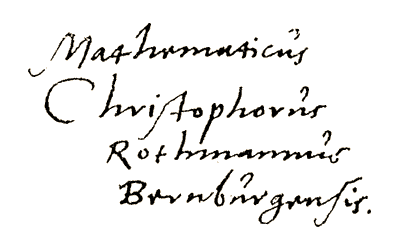 Mathematicus
Christophorus
Rothmannus
Bernburgensis.